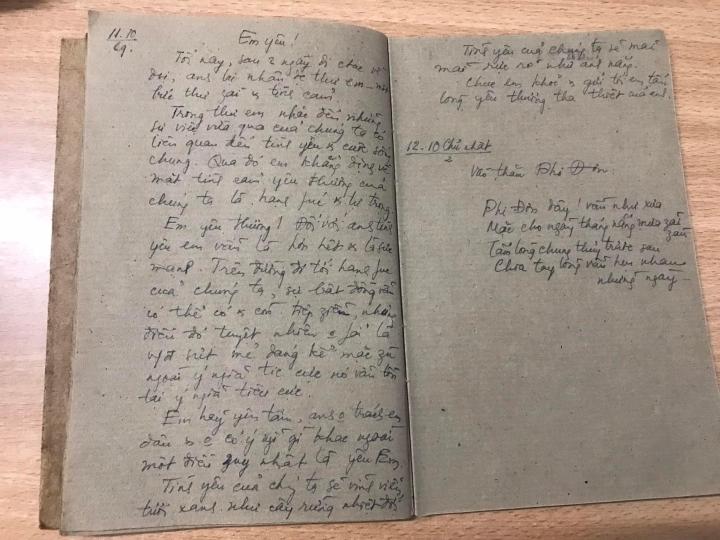 11.10
69.
Em yêu!
Tối nay, sau 2 ngày đi công về
đọi, ans lại nhận đc thư em
bức thư dài & tình cảm
Trong thư em nhắc đến những
sự việc vừa qua của chúng ta có
liên quan đến tình yêu & cuộc sống
chung. Qua đó em khẳng định về
mặt tình cảm yêu thương của
chúng ta là hạnh fúc
Em yêu thương! Đối với ans tình
yêu em vẫn là hơn hết & là sức
mạnh. Trên đường đi tới hạnh fúc
của chúng ta, sự bất đồng vẫn
có thể có & còn tiếp diễn, nhưng
điều đó tuyệt nhiên o fải là
vết sứt mẻ đáng kể mặc zù
ngoài ý nghĩa tíc cực nó vẫn tồn
tại ý nghĩa tiêu cực.
Em hãy yên tâm, ans o trách em
đâu & o có ý nghĩ gì khác ngoài
một điều quy nhất là yêu Em.
Tình yêu của chúng ta sẽ vĩnh viễn
tươi xanh như cây rừng nhiệt đới
Tình yêu của chúng ta sẽ mãi
mãi rực rỡ như ans nắng.
Chúc em khoẻ & gửi tới em tấm
lòng yêu thương tha thiết của em.
12.10 Chủ nhật
2
Vào thăm Phi Đôn
Phi Đôn đây! vẫn như xưa
Mặc cho ngày tháng nắng mưa zãi zầu
Tấm lòng chung thủy trước sau
Chia tay lòng vẫn hẹn nhau
những ngày